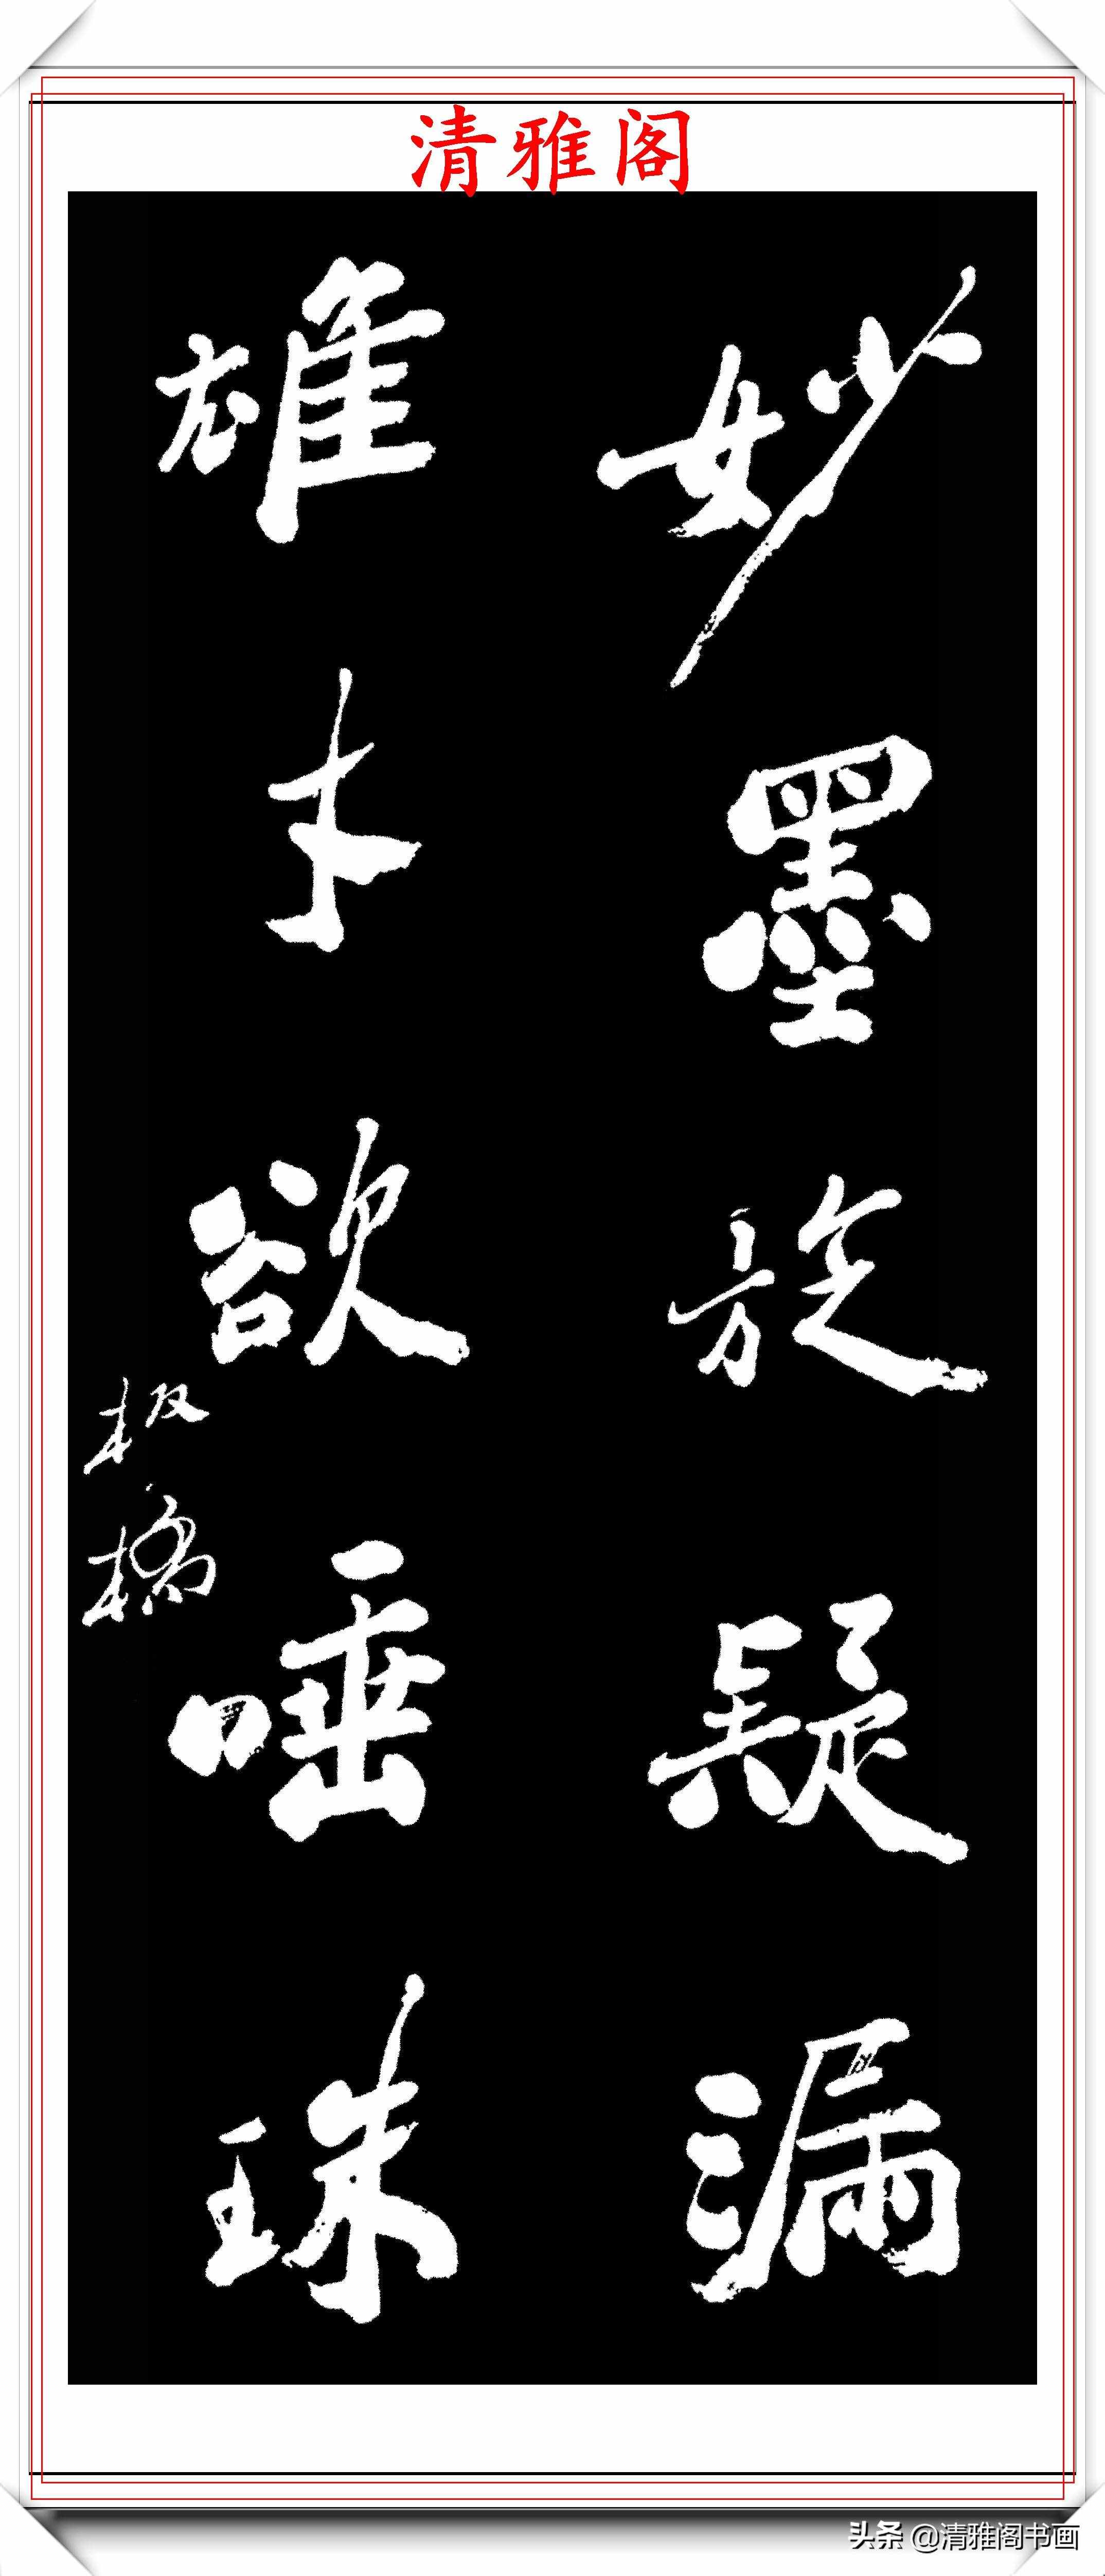 清雅阁
妙墨旋疑漏
雄才欲唾珠
板橋
头条 @清雅阁书画